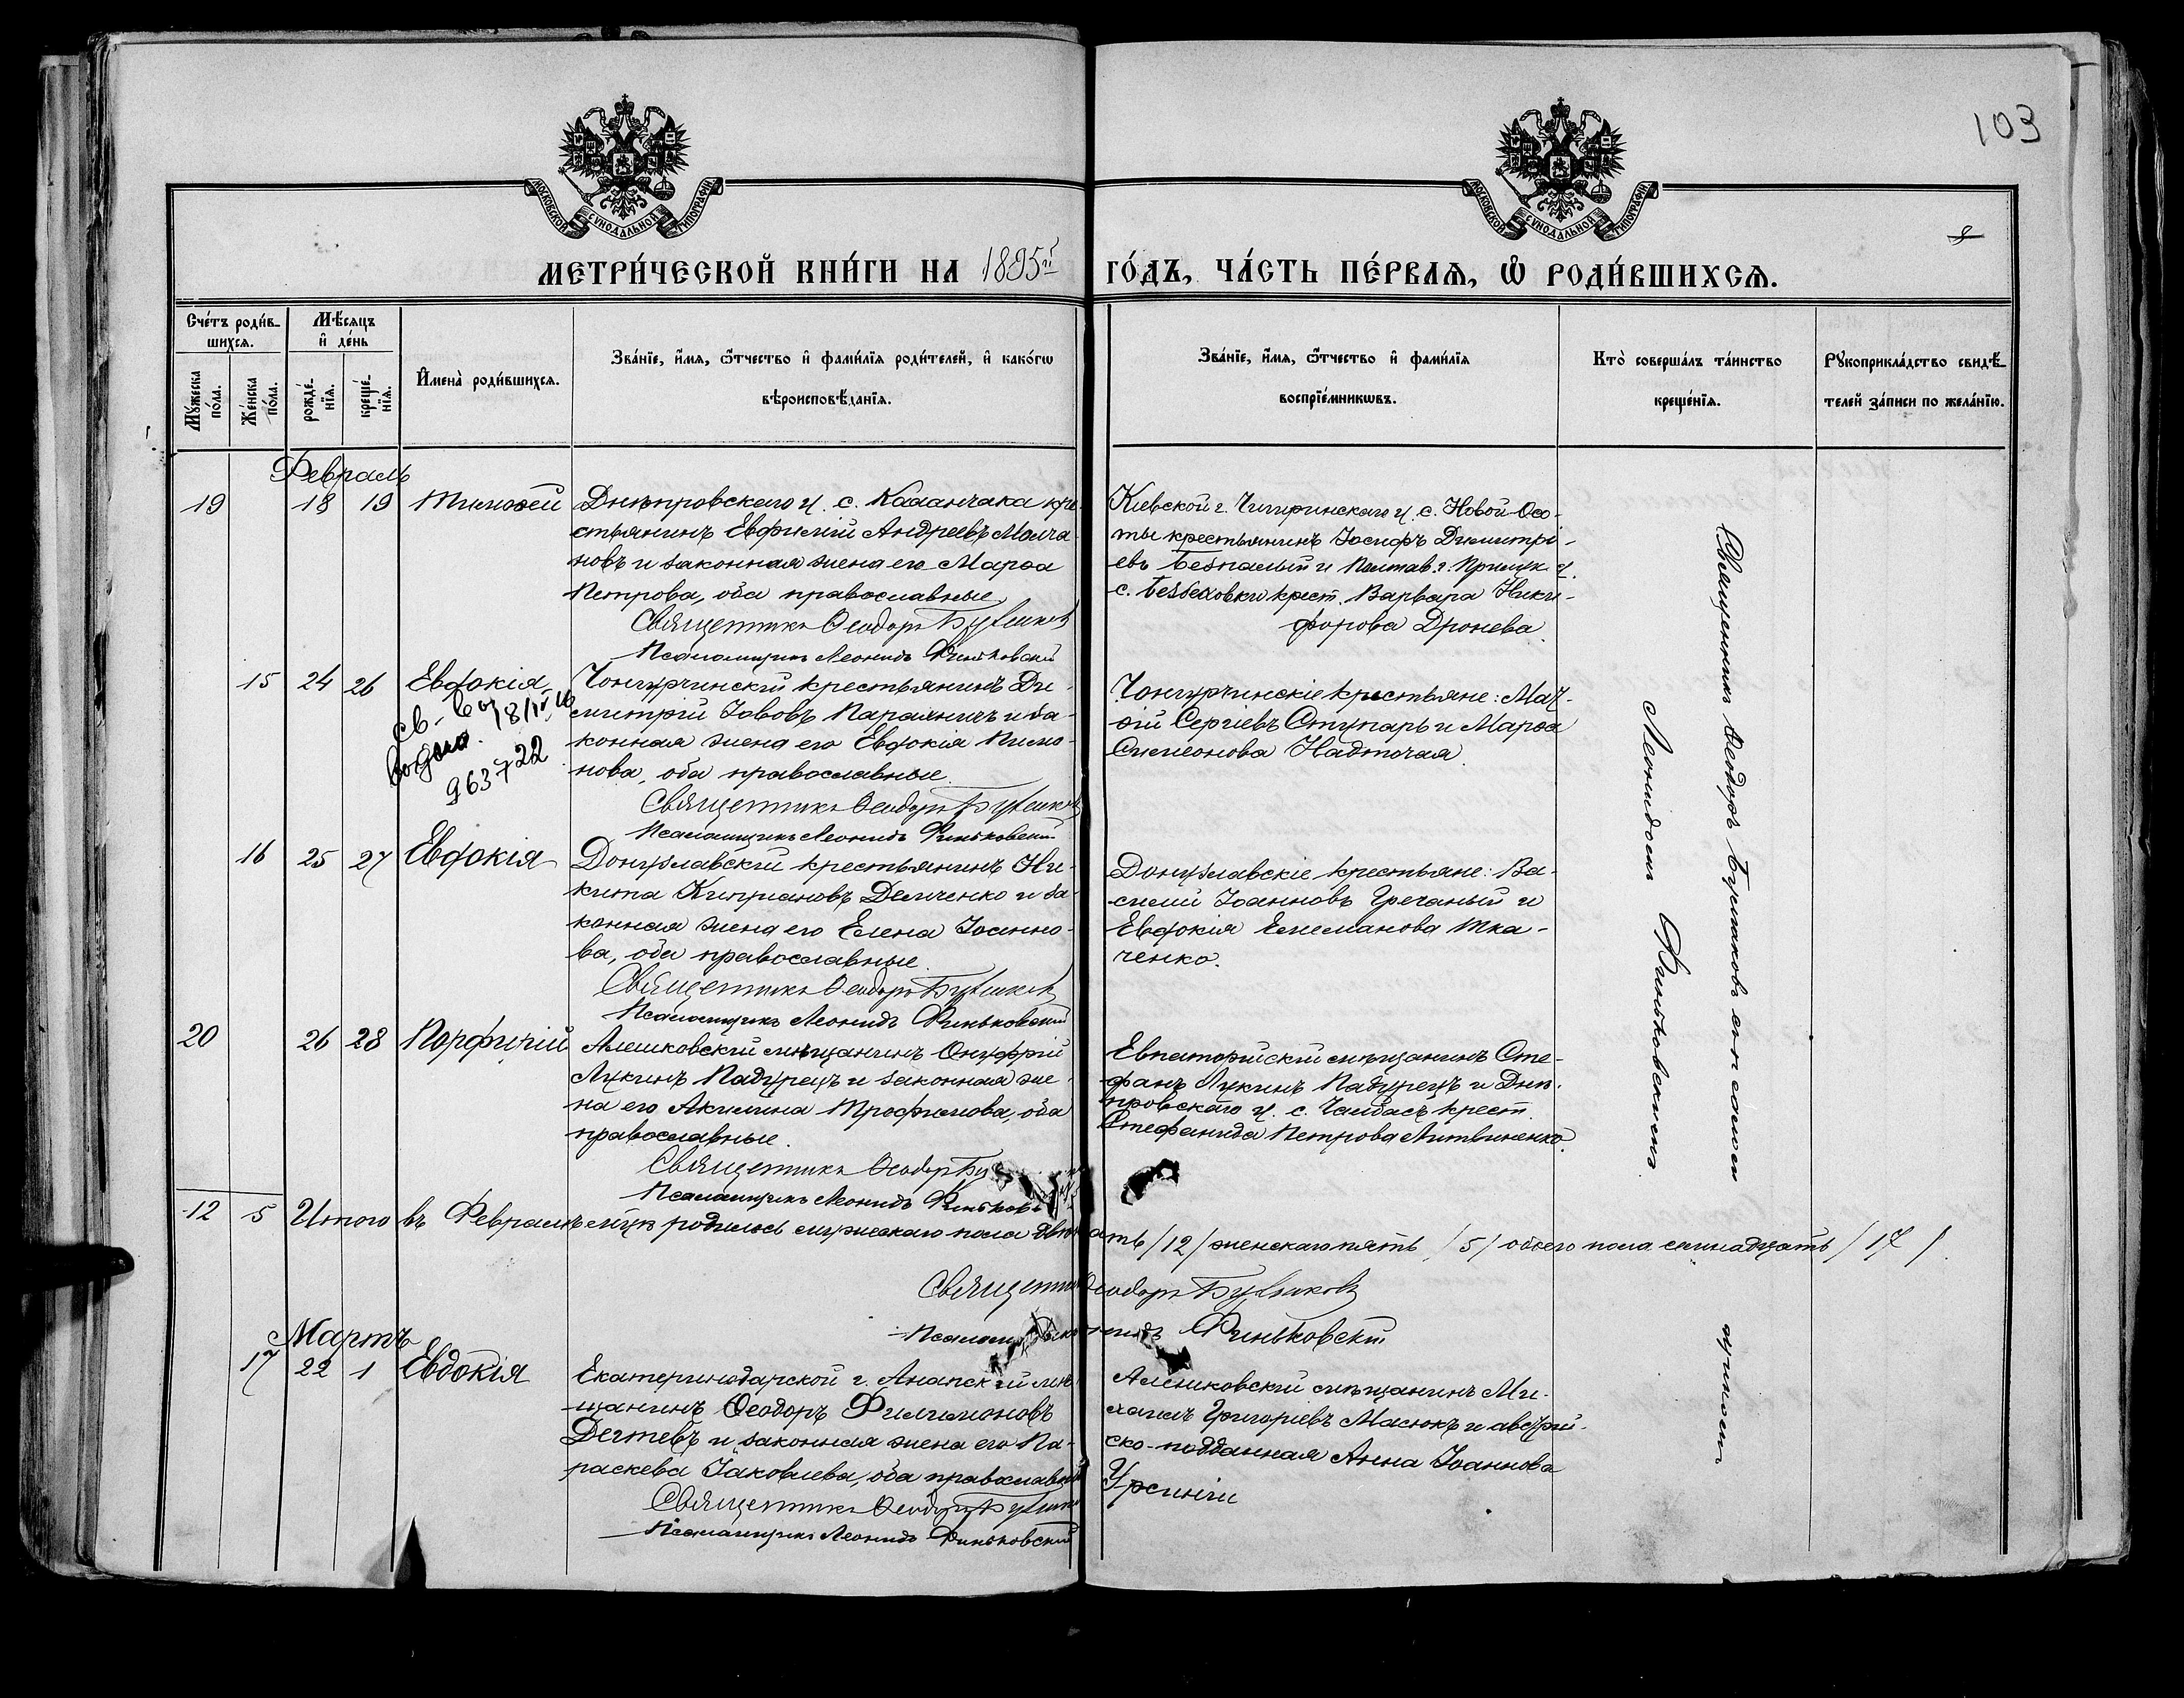 103
МОСКОВСКОЙ СѴНОДАЛЬНОЙ ТИПОГРАФІИ
МОСКОВСКОЙ СѴНОДАЛЬНОЙ ТИПОГРАФІИ
8
МЕТРИ́ЧЕСКОЙ КНИ́ГИ НА 1895й ГО́ДЪ, ЧА́СТЬ ПЕ́РВАѦ, Ѡ҆ РОДИ́ВШИХСѦ.
Сче́тъ роди́в-
шихсѧ.
Му́жеска по́ла.
Же́нска по́ла.
Мѣ́сѧцъ
и҆ де́нь
рожде́-
нїѧ.
креще́-
нїѧ.
И҆мена̀ роди́вшихсѧ.
Зва́нїе, и҆́мѧ, ѻ҆́тчество и҆ фами́лїѧ роди́телей, и҆ како́гѡ
вѣроисповѣ́данїѧ.
Зва́нїе, и҆́мѧ, ѻ҆́тчество и҆ фами́лїѧ
воспрїе́мникѡвъ.
Кто̀ соверша́лъ та́инство
креще́нїѧ.
Рꙋкоприкла́дство свидѣ́-
телей за́писи по жела́нїю.
Февраль
19 18 19 Тимоѳей
Днѣпровскаго у. с. Каланчака кре-
стьянинъ Евфимій Андреевъ Молча-
новъ и законная жена его Марѳа
Петрова, оба православные
Священникъ Ѳеодоръ Бушаков
Псаломщикъ Леонидъ Финьковскій
Кіевской г. Чигиринскаго у. с. Новой-Осо-
ты крестьянинъ Іосифъ Димитрі-
евъ Безпалый и Полтав. г. Прилук. у.
с. крест. Варвара Ники-
форова Дронева.
15 24 26 Евдокія
св-во
18/IV
963722
Чонгурчинскій крестьянинъ Ди-
митрій Іововъ и за-
конная жена его Евдокія Пимо-
нова, оба православные.
Священникъ Ѳеодоръ Бушаков
Псаломщикъ Леонидъ Финьковскій
Чонгурчинскіе крестьяне: Мат-
ѳій Сергіевъ Ступарь и Марѳа
Симеонова Надточая.
16 25 27 Евдокія
Донузлавскій крестьянинъ Ни-
кита Кипріановъ Демченко и за-
конная жена его Елена Іоанно-
ва, оба православные.
Священникъ Ѳеодоръ Бушаков
Псаломщикъ Леонидъ Финьковскій
Донузлавскіе крестьяне: Ва-
силій Іоанновъ Гречаный и
Евдокія Ткa-
ченко.
20 26 28 Порфирій
Алешковскій мѣщанинъ Онуфрій
Лукинъ Падурецъ и законная же-
на его Акилина Трофимова, оба
православные.
Священникъ Ѳеодоръ
Псаломщикъ Леонидъ
Евпаторійскій мѣщанинъ Сте-
фанъ Лукинъ Падурецъ и Днѣ-
провскаго у. с. Чалбасъ крест.
Стефанида Петрова Литвиненко.
12 5 Итого въ Февралѣ мцѣ родилось мужескаго пола двѣнадцать /12/ женскаго пять /5/ обоего пола семнадцать /17/.
Священникъ Ѳеодоръ Бушаковъ
Псаломщикъ Леонидъ Финьковскій
Мартъ
17 22 1 Евдокія
Екатеринодарской г. Анапскій мѣ-
щанинъ Ѳеодоръ Филимоновъ
Дегтевъ и законная жена его Па-
раскева Іаковлева, оба православные
Священникъ Ѳеодоръ Бушаков
Псаломщикъ Леонидъ Финьковскій
Алешковскій мѣщанинъ Ми-
хаилъ Григоріевъ Масюкъ и австрій-
ско-подданная Анна Іоаннова
Священникъ Ѳеодоръ Бушаковъ съ псаломщикомъ
Леонидомъ Финьковскимъ